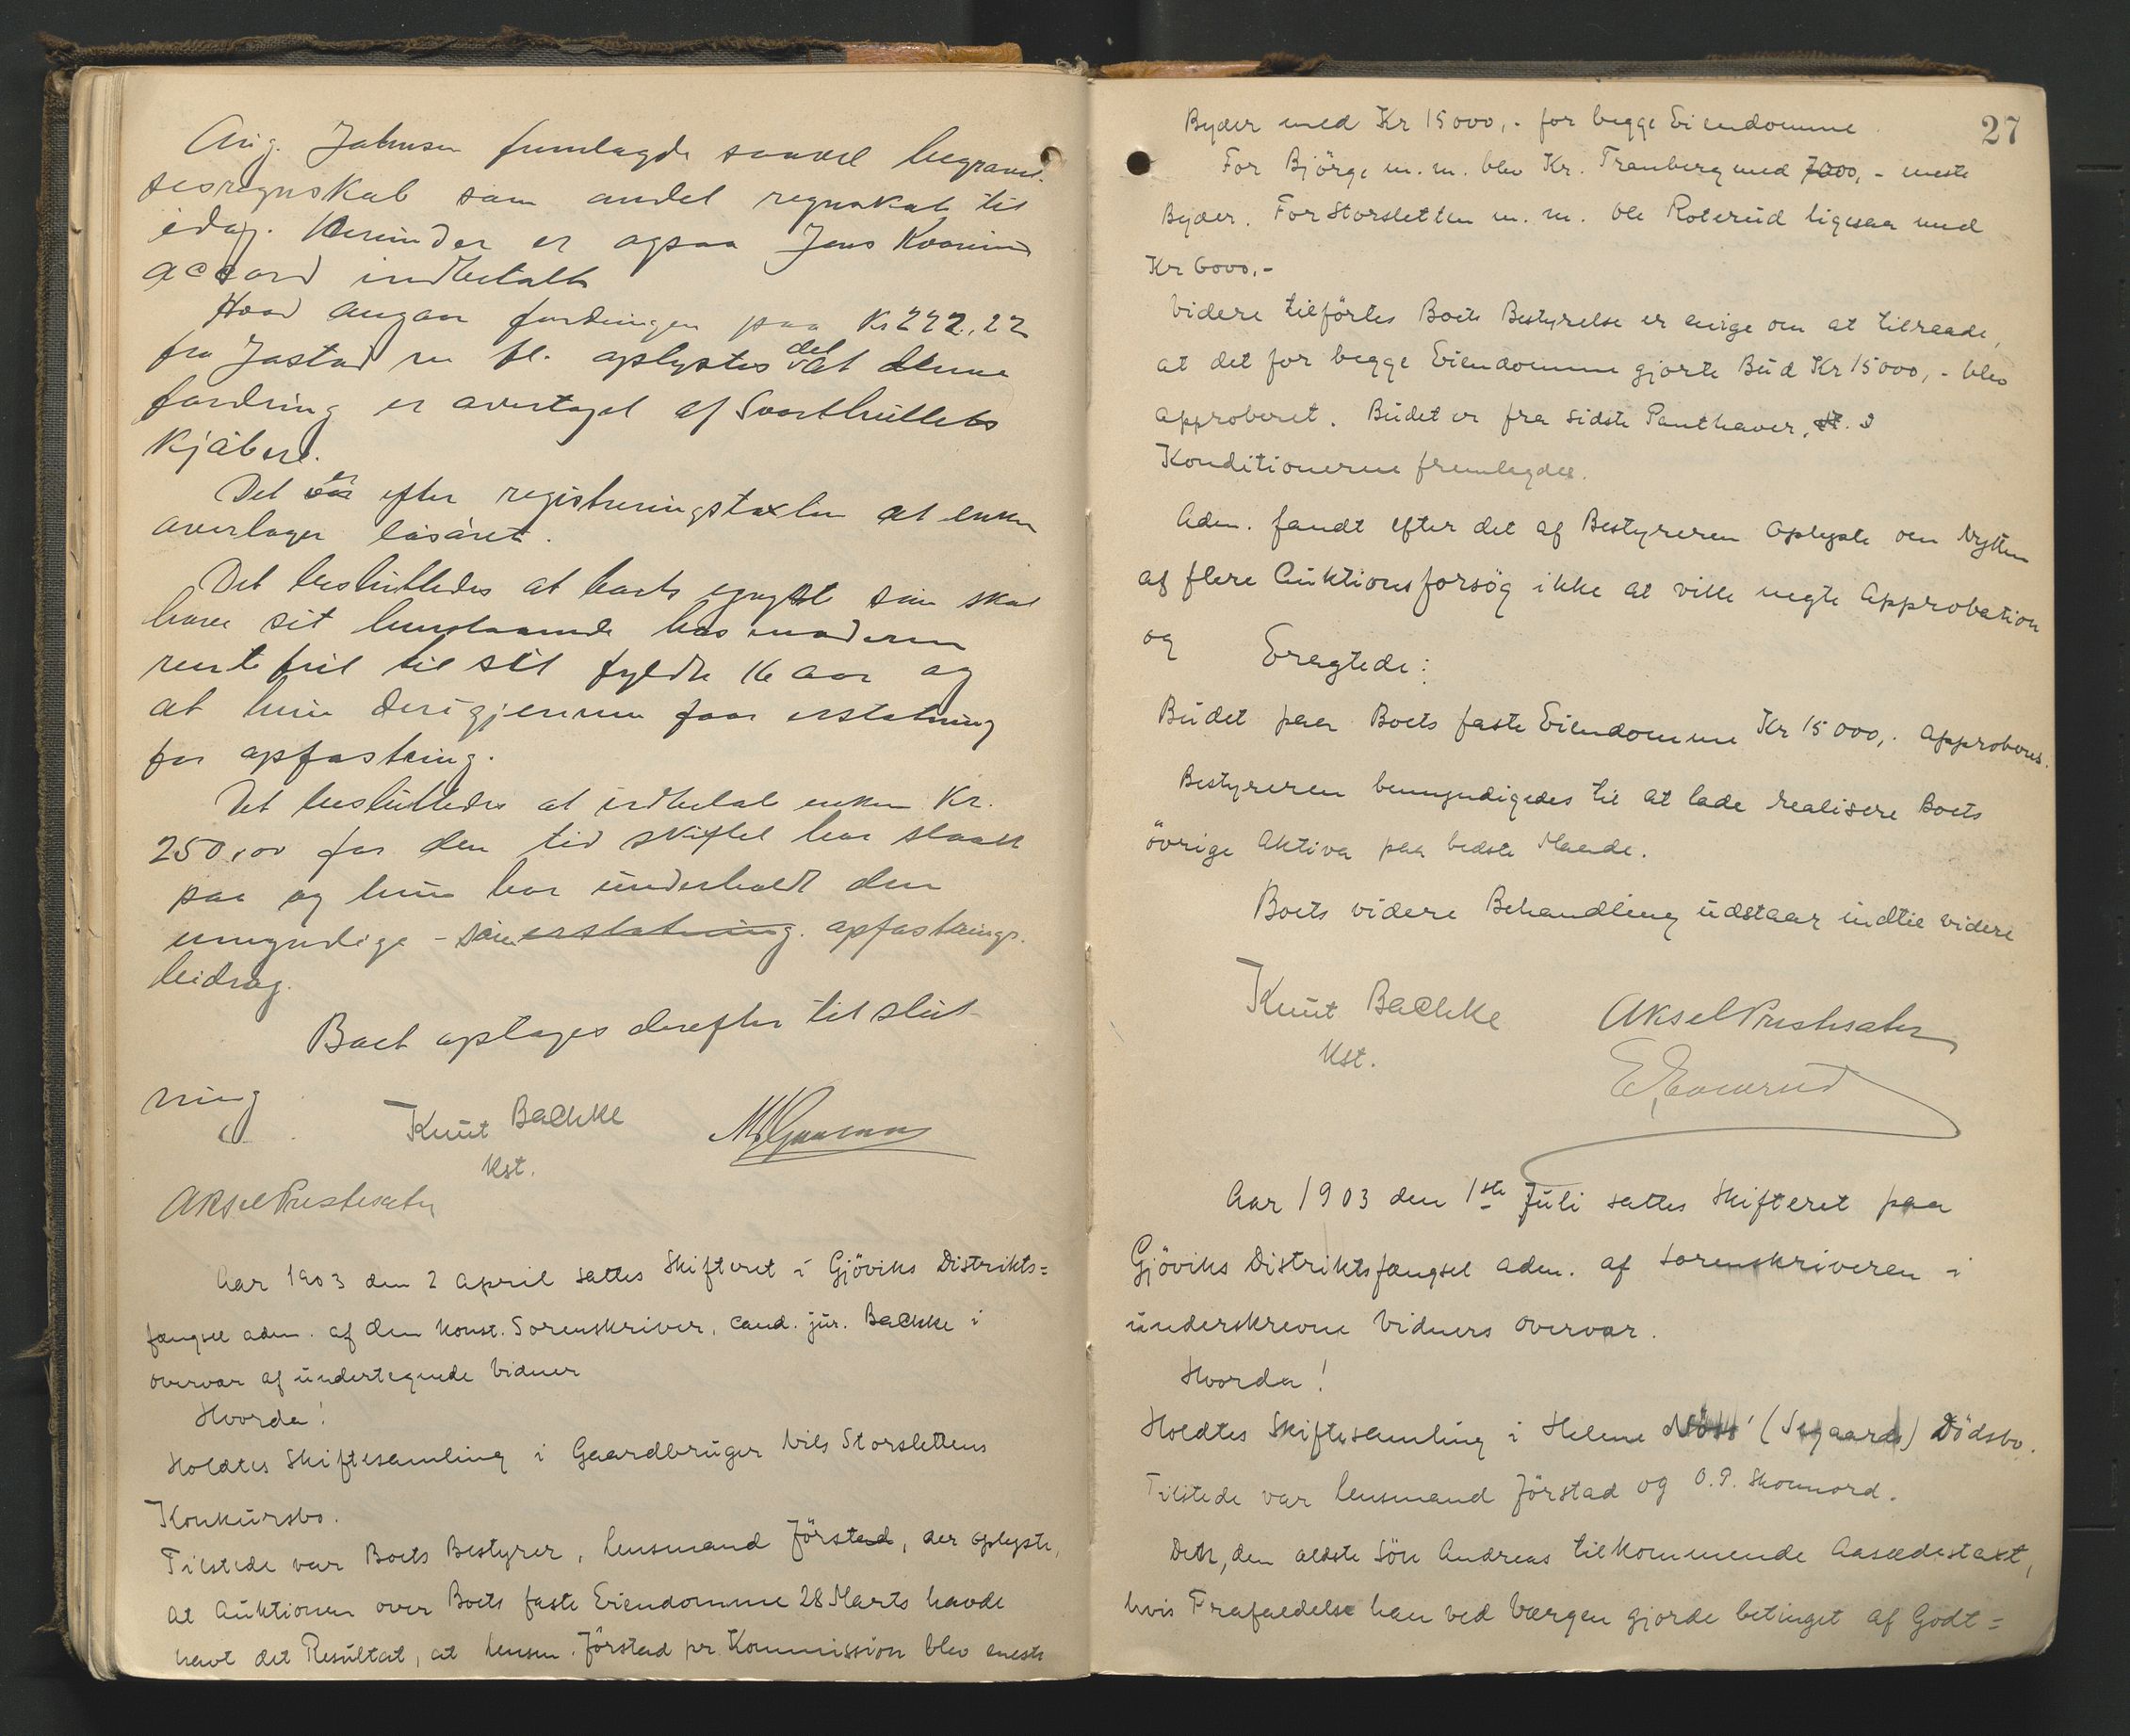 Aug. Johnsen fremlagde saavel begravel-
sesregnskab som andet regnskab til
idag. Herunder er ogsaa Jens
accord indbetalt
Hvad angaar fordringen paa Kr 222.22
fra Jastad m fl. oplystes det at denne
fordring er overtaget af Svarthullets
kjöber.
Det er efter registreringstaxten at enken
overtager lösöret.
Det besluttedes at boets yngste sön skal
have sit henstaaende hos moderen
rentefrit til sit fyldte 16 aar og
at hun derigjennem faar erstatning
for opfostring.
Det besluttedes at udbetale enken Kr.
250,00 for den tid skiftet har staaet
paa og hun har underholdt den
umyndige sön erstatning. opfostrings-
bidrag.
Boet optages derefter til slut-
ning
Knut Bachke
Kst.
Aksel Prestesater
Aar 1903 den 2 April sattes Skifteret i Gjöviks Distrikts=
fængsel adm. af den konst. Sorenskriver, cand. jur. Bachke i
overvær af undertegnede Vidner
Hvorda!
Holdtes Skiftesamling i Gaardbruger Nils Storslettens
Konkursbo.
Tilstede var Boets Bestyrer, Lensmand Förstad, der oplyste,
at Auktionen over Boets faste Eiendomme 28 Marts havde
havt det Resultat, at Lensm. Förstad pr. Kommission blev meste
27
Byder med Kr 15000,- for begge Eiendomme.
For Björge m. m. blev Kr. Tranberg med 7000,- meste
Byder. For Storsletten m. m. Ole Roterud ligesaa med
Kr 6000.-
Videre tilförtes Boets Bestyrelse er enige om at tilraade,
at det for begge Eiendomme gjorte Bud Kr 15000,- blev
approberet. Budet er fra sidste Panthaver.
Konditionerne fremlagdes.
Adm. fandt efter det af Bestyreren oplyste om Nytten
af flere Auktionsforsög ikke at ville negte Approbation
og Eragtede:
Budet paa Boets faste Eiendomme Kr 15000,- approberes.
Bestyreren bemyndigedes til at lade realisere Boets
övrige Aktiva paa bedste Maade.
Boets videre Behandling udstaar indtil videre
Knut Bachke Aksel Prestesater
Kst.
Aar 1903 den 1ste Juli sattes Skifteret paa
Gjöviks Distriktsfængsel adm. af Sorenskriveren i
underskrevne Vidners overvær.
Hvorda!
Holdtes Skiftesamling i Helene (Segaard) Dödsbo.
Tilstede var Lensmand Förstad og O. P.
Den, den ældste Sön Andreas tilkommende Aasædestaxt,
hvis Frafaldelse han ved Værgen gjorde betinget af Godt=